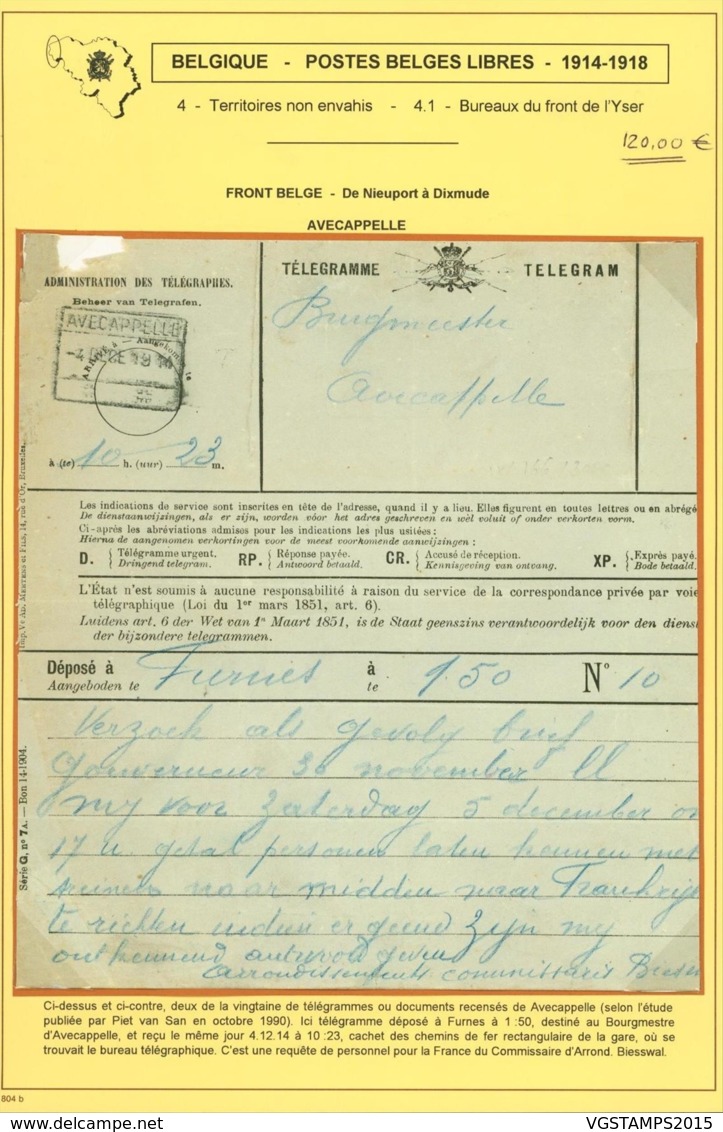 BELGIQUE - POSTES BELGES LIBRES - 1914-1918
4 - Territoires non envahis - 4.1 - Bureaux du front de l'Yser
120,00 €
FRONT BELGE - De Nieuport à Dixmude
AVECAPPELLE
ADMINISTRATION DES TÉLÉGRAPHES.
Beheer van Telegrafen.
TÉLEGRAMME TELEGRAM
AVECAPPELLE
Burgmeester
Avecappelle
à (te) 10 h. (uur) 23 m.
Les indications de service sont inscrites en tête de l'adresse, quand il y a lieu. Elles figurent en toutes lettres ou en abrégé
De dienstaanwijzingen, als er zijn, worden vóor het adres geschreven en wèl voluit of onder verkorten vorm.
Ci-après les abréviations admises pour les indications les plus usitées:
Hierna de aangenomen verkortingen voor de meest voorkomende aanwijzingen:
D. Télégramme urgent. RP. Réponse payée. CR. Accusé de réception. XP. Exprès payé.
Dringend telegram. Antwoord betaald. Kennisgeving van ontvang. Bode betaald.
L'État n'est soumis à aucune responsabilité à raison du service de la correspondance privée par voie
télégraphique (Loi du 1er mars 1851, art. 6).
Luidens art. 6 der Wet van 1n Maart 1851, is de Staat geenszins verantwoordelijk voor den dienst
der bijzondere telegrammen.
Déposé à Furnes à 1.50 N° 10
Aangeboden te te
Série G, n° 7A. — Bon 14-1904.
Verzoek als gevolg brief
Gouverneur 30 november ll
my voor Zaterdag 5 december
17 u getal personen laten kennen met
naar midden naar Frankrijk
te richten indien er geend zijn my
antwoord geven
Arrondissements commissaris
Ci-dessus et ci-contre, deux de la vingtaine de télégrammes ou documents recensés de Avecappelle (selon l'étude
publiée par Piet van San en octobre 1990). Ici télégramme déposé à Furnes à 1 :50, destiné au Bourgmestre
d'Avecappelle, et reçu le même jour 4.12.14 à 10 :23, cachet des chemins de fer rectangulaire de la gare, où se
trouvait le bureau télégraphique. C'est une requête de personnel pour la France du Commissaire d'Arrond. Biesswal.
804 b
VGSTAMPS2015